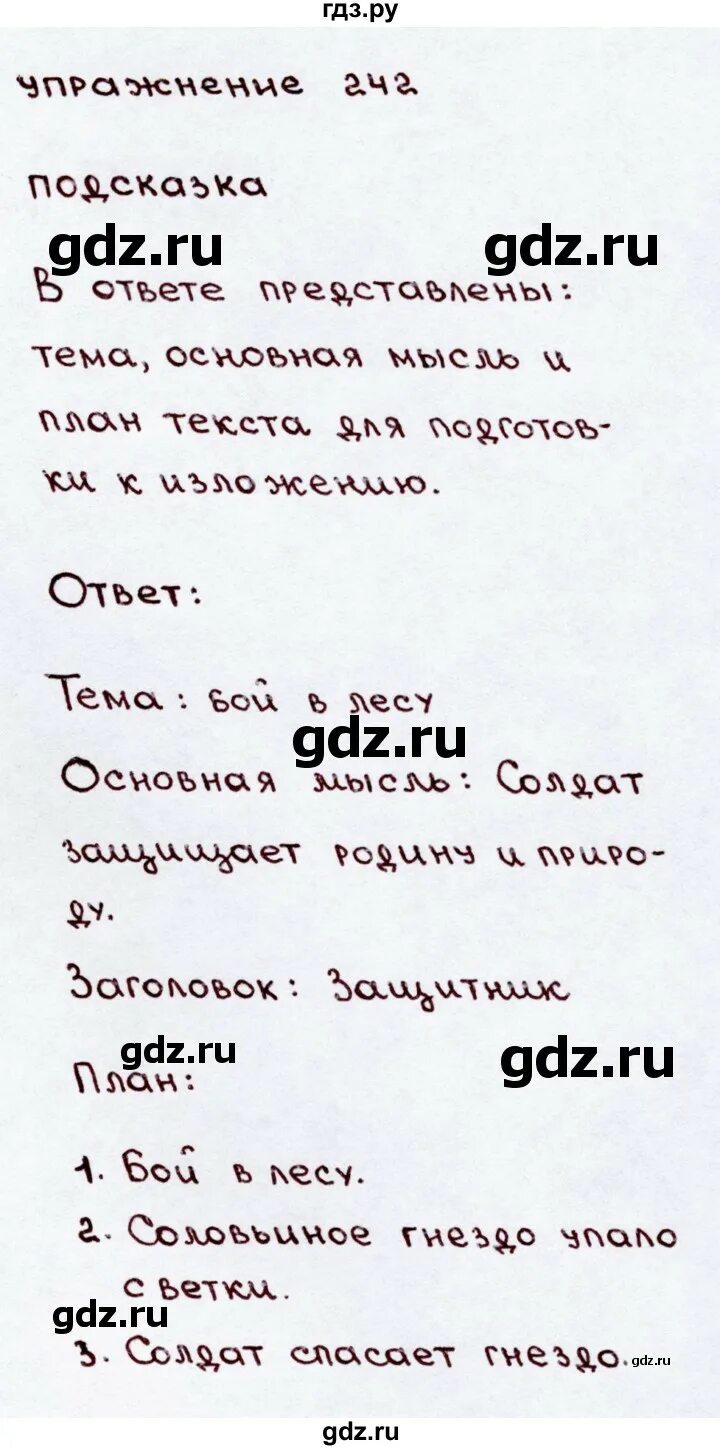 гдз.ру
упражнение 242
подсказка
gdz.ru gdz.ru
В ответе представлены:
тема, основная мысль и
план текста для подготов-
ки к изложению.
Ответ:
Тема: бой в лесу
gdz.ru
Основная мысль: Солдат
защищает родину и приро-
ду.
Заголовок: Защитник
gdz.ru gdz.ru
План:
1. Бой в лесу.
2. Соловьиное гнездо упало
с ветки.
gdz.ru
3. Солдат спасает гнездо.
gdz.ru
gdz.ru